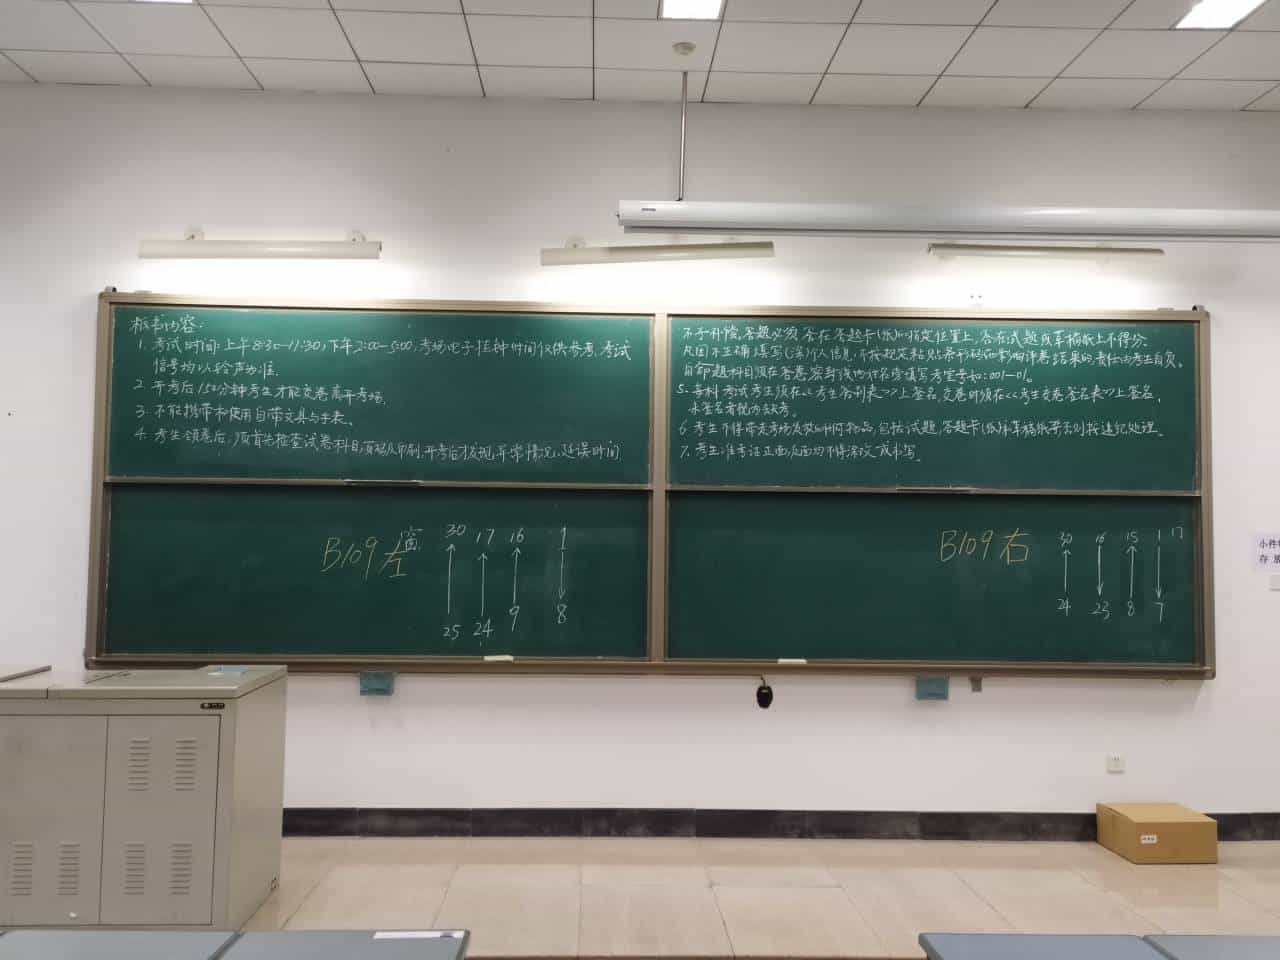 板书内容:
1. 考试时间:上午8:30-11:30,下午2:00-5:00,考场电子挂钟时间仅供参考,考试
信号均以铃声为准.
2. 开考后150分钟考生才能交卷离开考场.
3. 不能携带和使用自带文具与手表.
4. 考生领卷后,须首先检查试卷科目,页码及印刷.开考后才发现异常情况,延误时间
不予补偿.答题必须答在答题卡(纸)的指定位置上,答在试题或草稿纸上不得分.
凡因不正确填写(涂)个人信息,不按规定粘贴条形码而影响评卷结果的,责任由考生自负.
自命题科目须在答卷密封线内姓名旁填写考室号如:001-01。
5. 每科考试考生须在<<考生签到表>>上签名,交卷时须在<<考生交卷签名表>>上签名,
未签名者视为缺考。
6. 考生不得带走考场发放的任何物品,包括试题,答题卡(纸)草稿纸等否则按违纪处理。
7. 考生准考证正面,反面均不得涂改或书写。
B109左 窗 30 17 16 1
25 24 9 8
B109右 30 16 15 1 17
24 23 8 7
小件
存